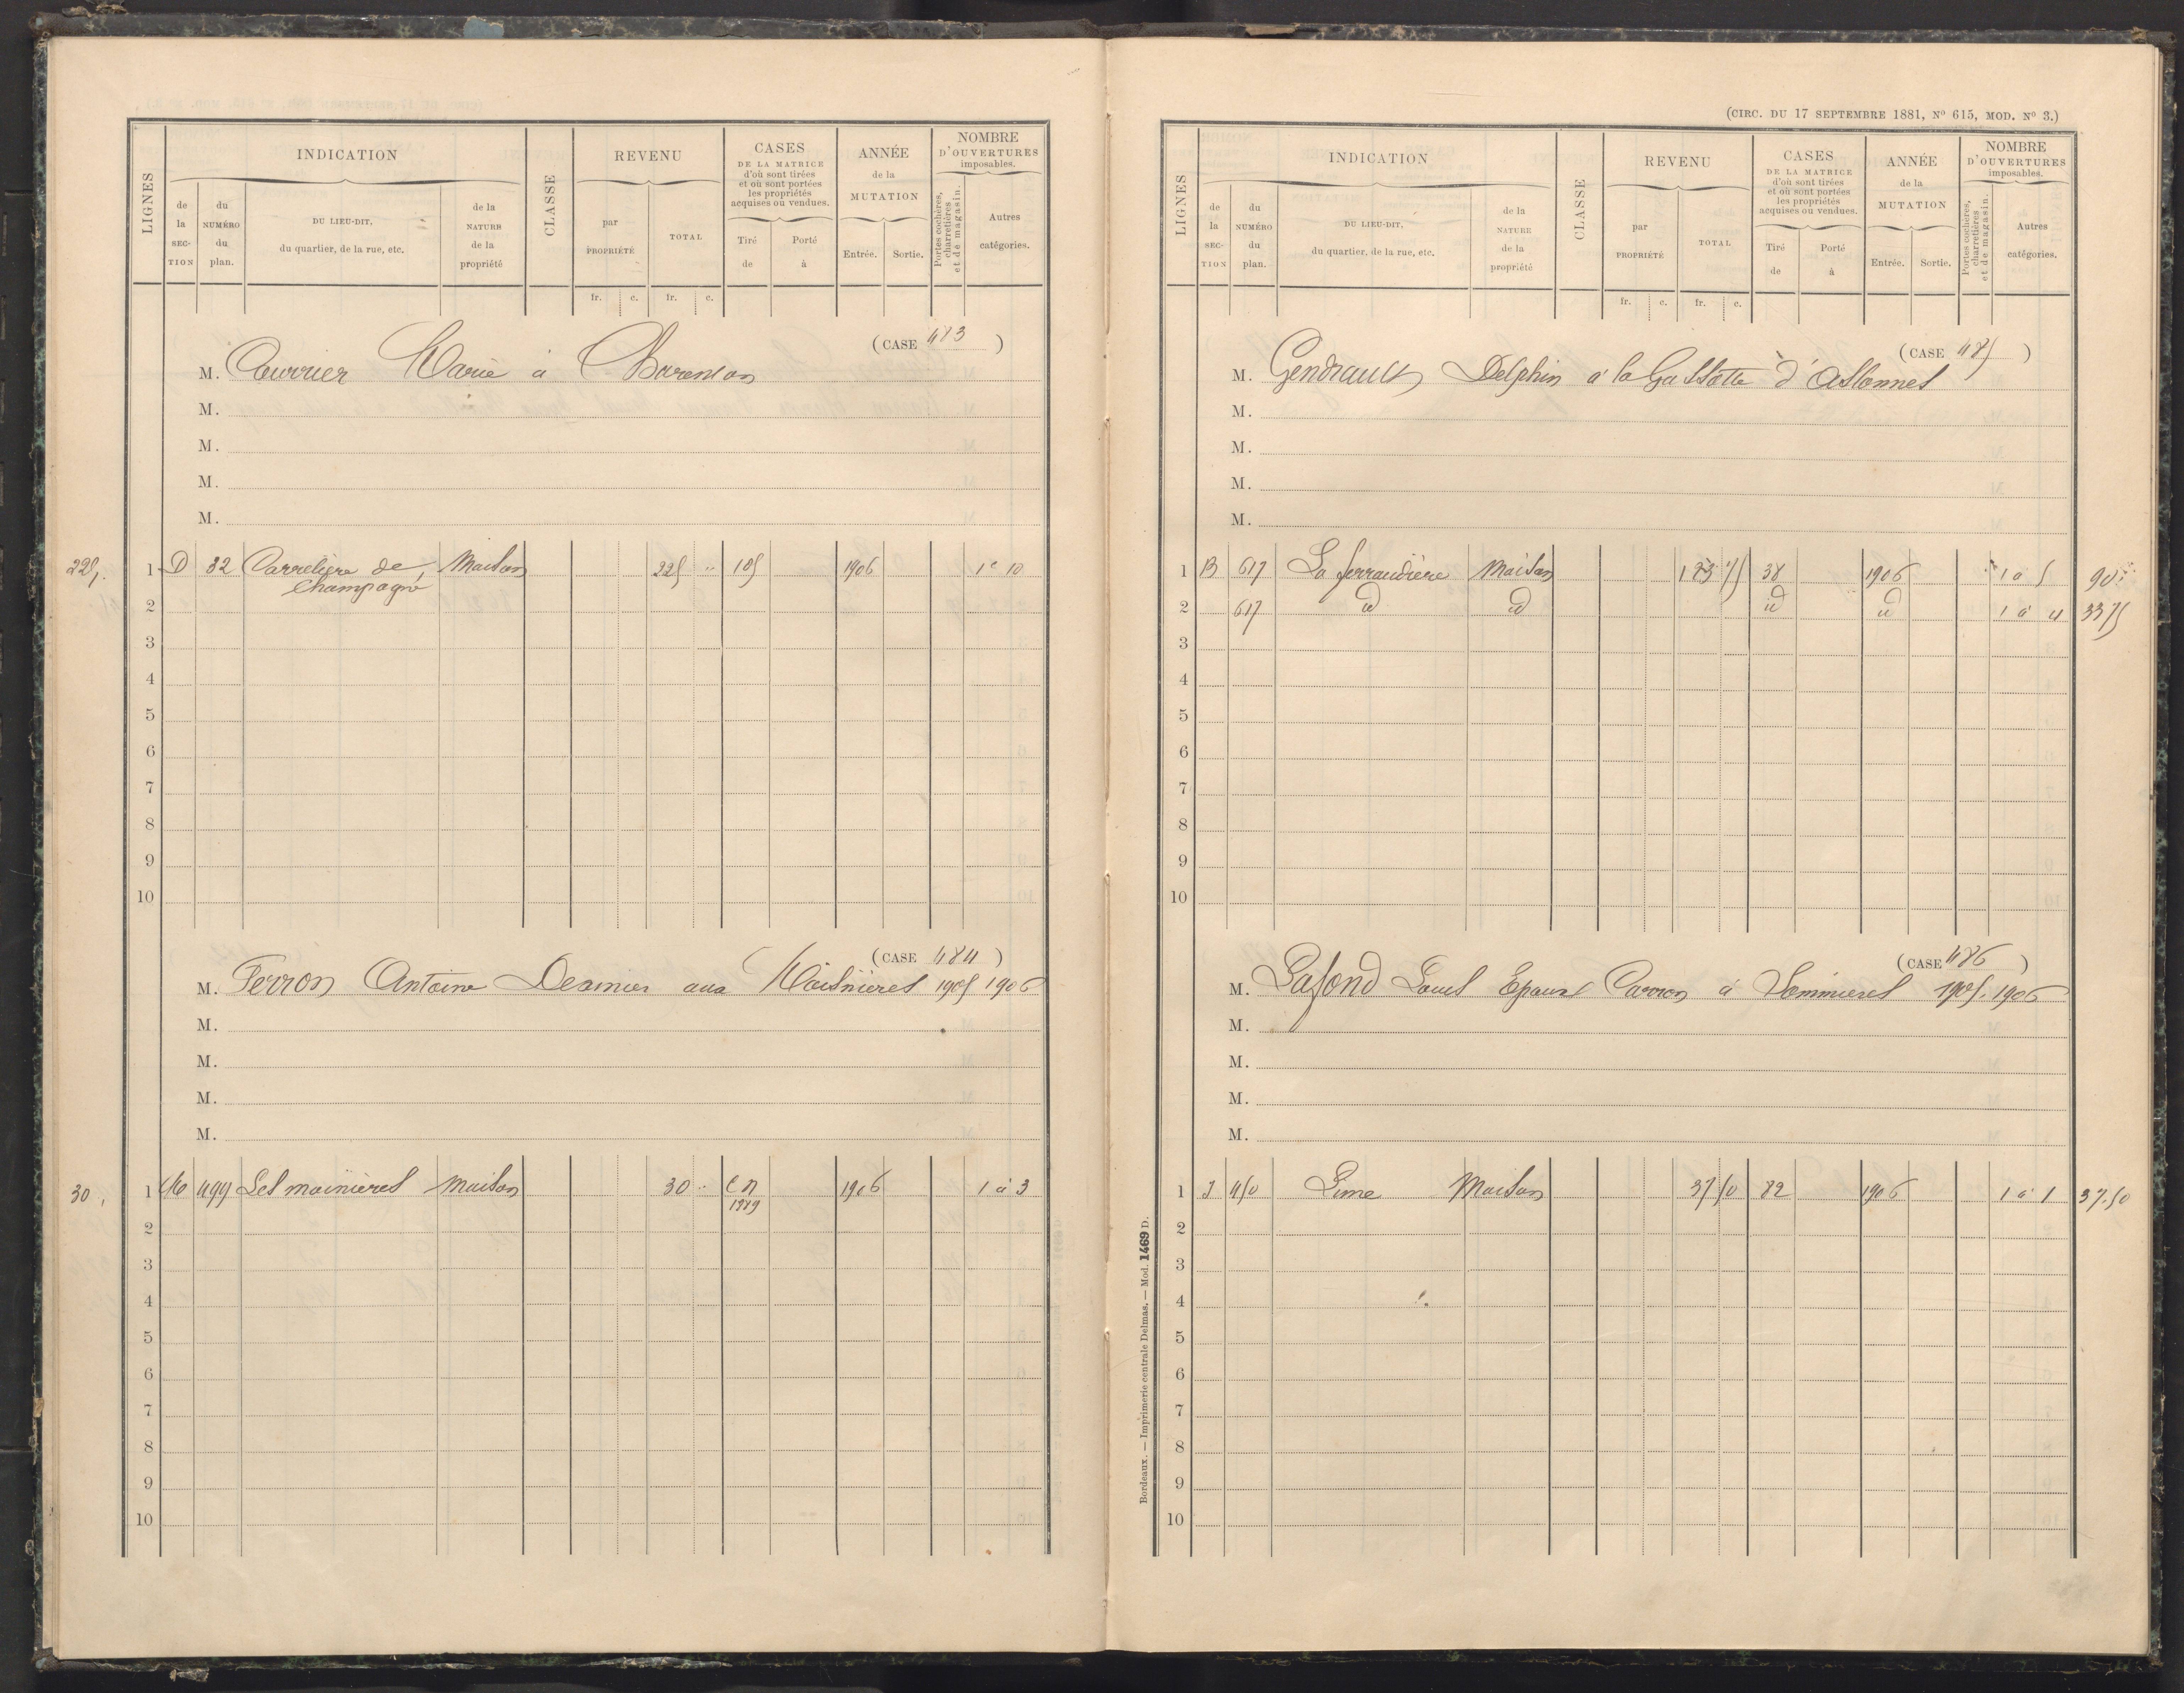 LIGNES
INDICATION
de la SECTION
du NUMÉRO du plan.
DU LIEU-DIT, du quartier, de la rue, etc.
de la NATURE de la propriété
CLASSE
REVENU
par PROPRIÉTÉ
TOTAL
CASES DE LA MATRICE d'où sont tirées et où sont portées les propriétés acquises ou vendues.
Tiré de
Porté à
ANNÉE de la MUTATION
Entrée. Sortie.
NOMBRE D'OUVERTURES imposables.
Portes cochères, charretières et de magasin.
Autres catégories.
fr. c. fr. c.
(CASE 483)
M. Courrier Marie à
M.
M.
M.
M.
225, 1 D 32 Carrelière de Maison 225 " 105 1906 1 à 10
Champagné
2
3
4
5
6
7
8
9
10
(CASE 484)
M. Ferron Antoine Desmier aux Moisnières 1905 1906
M.
M.
M.
M.
30, 1 499 Les moinières Maison 30 " C n 1906 1 à 3
1989
2
3
4
5
6
7
8
9
10
(CIRC. DU 17 SEPTEMBRE 1881, No 615, MOD. No 3.)
LIGNES
INDICATION
de la SECTION
du NUMÉRO du plan.
DU LIEU-DIT, du quartier, de la rue, etc.
de la NATURE de la propriété
CLASSE
REVENU
par PROPRIÉTÉ
TOTAL
CASES DE LA MATRICE d'où sont tirées et où sont portées les propriétés acquises ou vendues.
Tiré de
Porté à
ANNÉE de la MUTATION
Entrée. Sortie.
NOMBRE D'OUVERTURES imposables.
Portes cochères, charretières et de magasin.
Autres catégories.
fr. c. fr. c.
(CASE 485)
M. Gendrault Delphin à la d'Aslonnes
M.
M.
M.
M.
1 B 617 La ferraudière Maison 123 75 38 1906 1 à 5 90 "
2 617 id id id id 1 à 4 33 75
3
4
5
6
7
8
9
10
(CASE 486)
M. Lafond Louis Epoux Carron à Sommières 1905. 1906
M.
M.
M.
M.
1 J 450 Lime Maison 37 50 82 1906 1 à 1 37.50
2
3
4
5
6
7
8
9
10
Bordeaux. — Imprimerie centrale Delmas. — Mod. 1469 D.